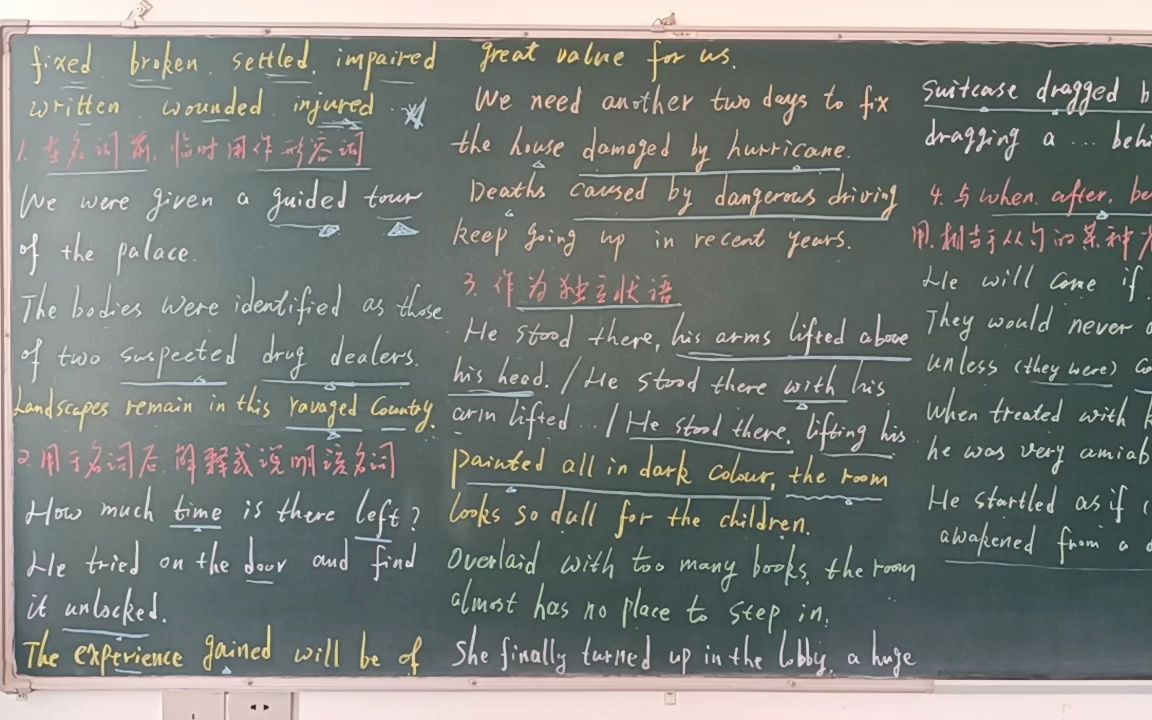 fixed broken settled. impaired
written wounded injured
1. 在名词前, 临时用作形容词
We were given a guided tour
of the palace.
The bodies were identified as those
of two suspected drug dealers.
Landscapes remain in this ravaged Country.
2. 用于名词后, 解释或说明该名词
How much time is there left?
He tried on the door and find
it unlocked.
The experience gained will be of
great value for us.
We need another two days to fix
the house damaged by hurricane.
Deaths caused by dangerous driving
keep going up in recent years.
3. 作为独立状语
He stood there, his arms lifted above
his head. / He stood there with his
arm lifted ... / He stood there, lifting his
painted all in dark colour, the room
looks so dull for the children.
Overlaid with too many books, the room
almost has no place to step in.
She finally turned up in the lobby, a huge
suitcase dragged b
dragging a ... behi
4. 与when, after, be
用, 相当于从句的某种
He will come if
They would never
unless (they were)
When treated with
he was very amiab
He startled as if
awakened from a